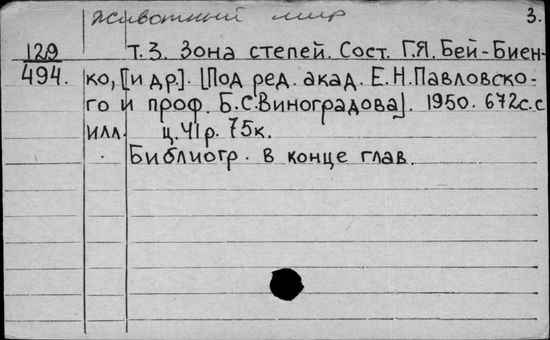 Животный мир 3.
129 Т. 3. Зона степей. Сост. Г.Я. Бей-Биен-
494. ко, [и др]. [Под ред. акад. Е.Н.Павловско-
го и проф. Б.С.Виноградова]. 1950. 672с.с
илл. ц.41р. 75к.
Библиогр. в конце глав.